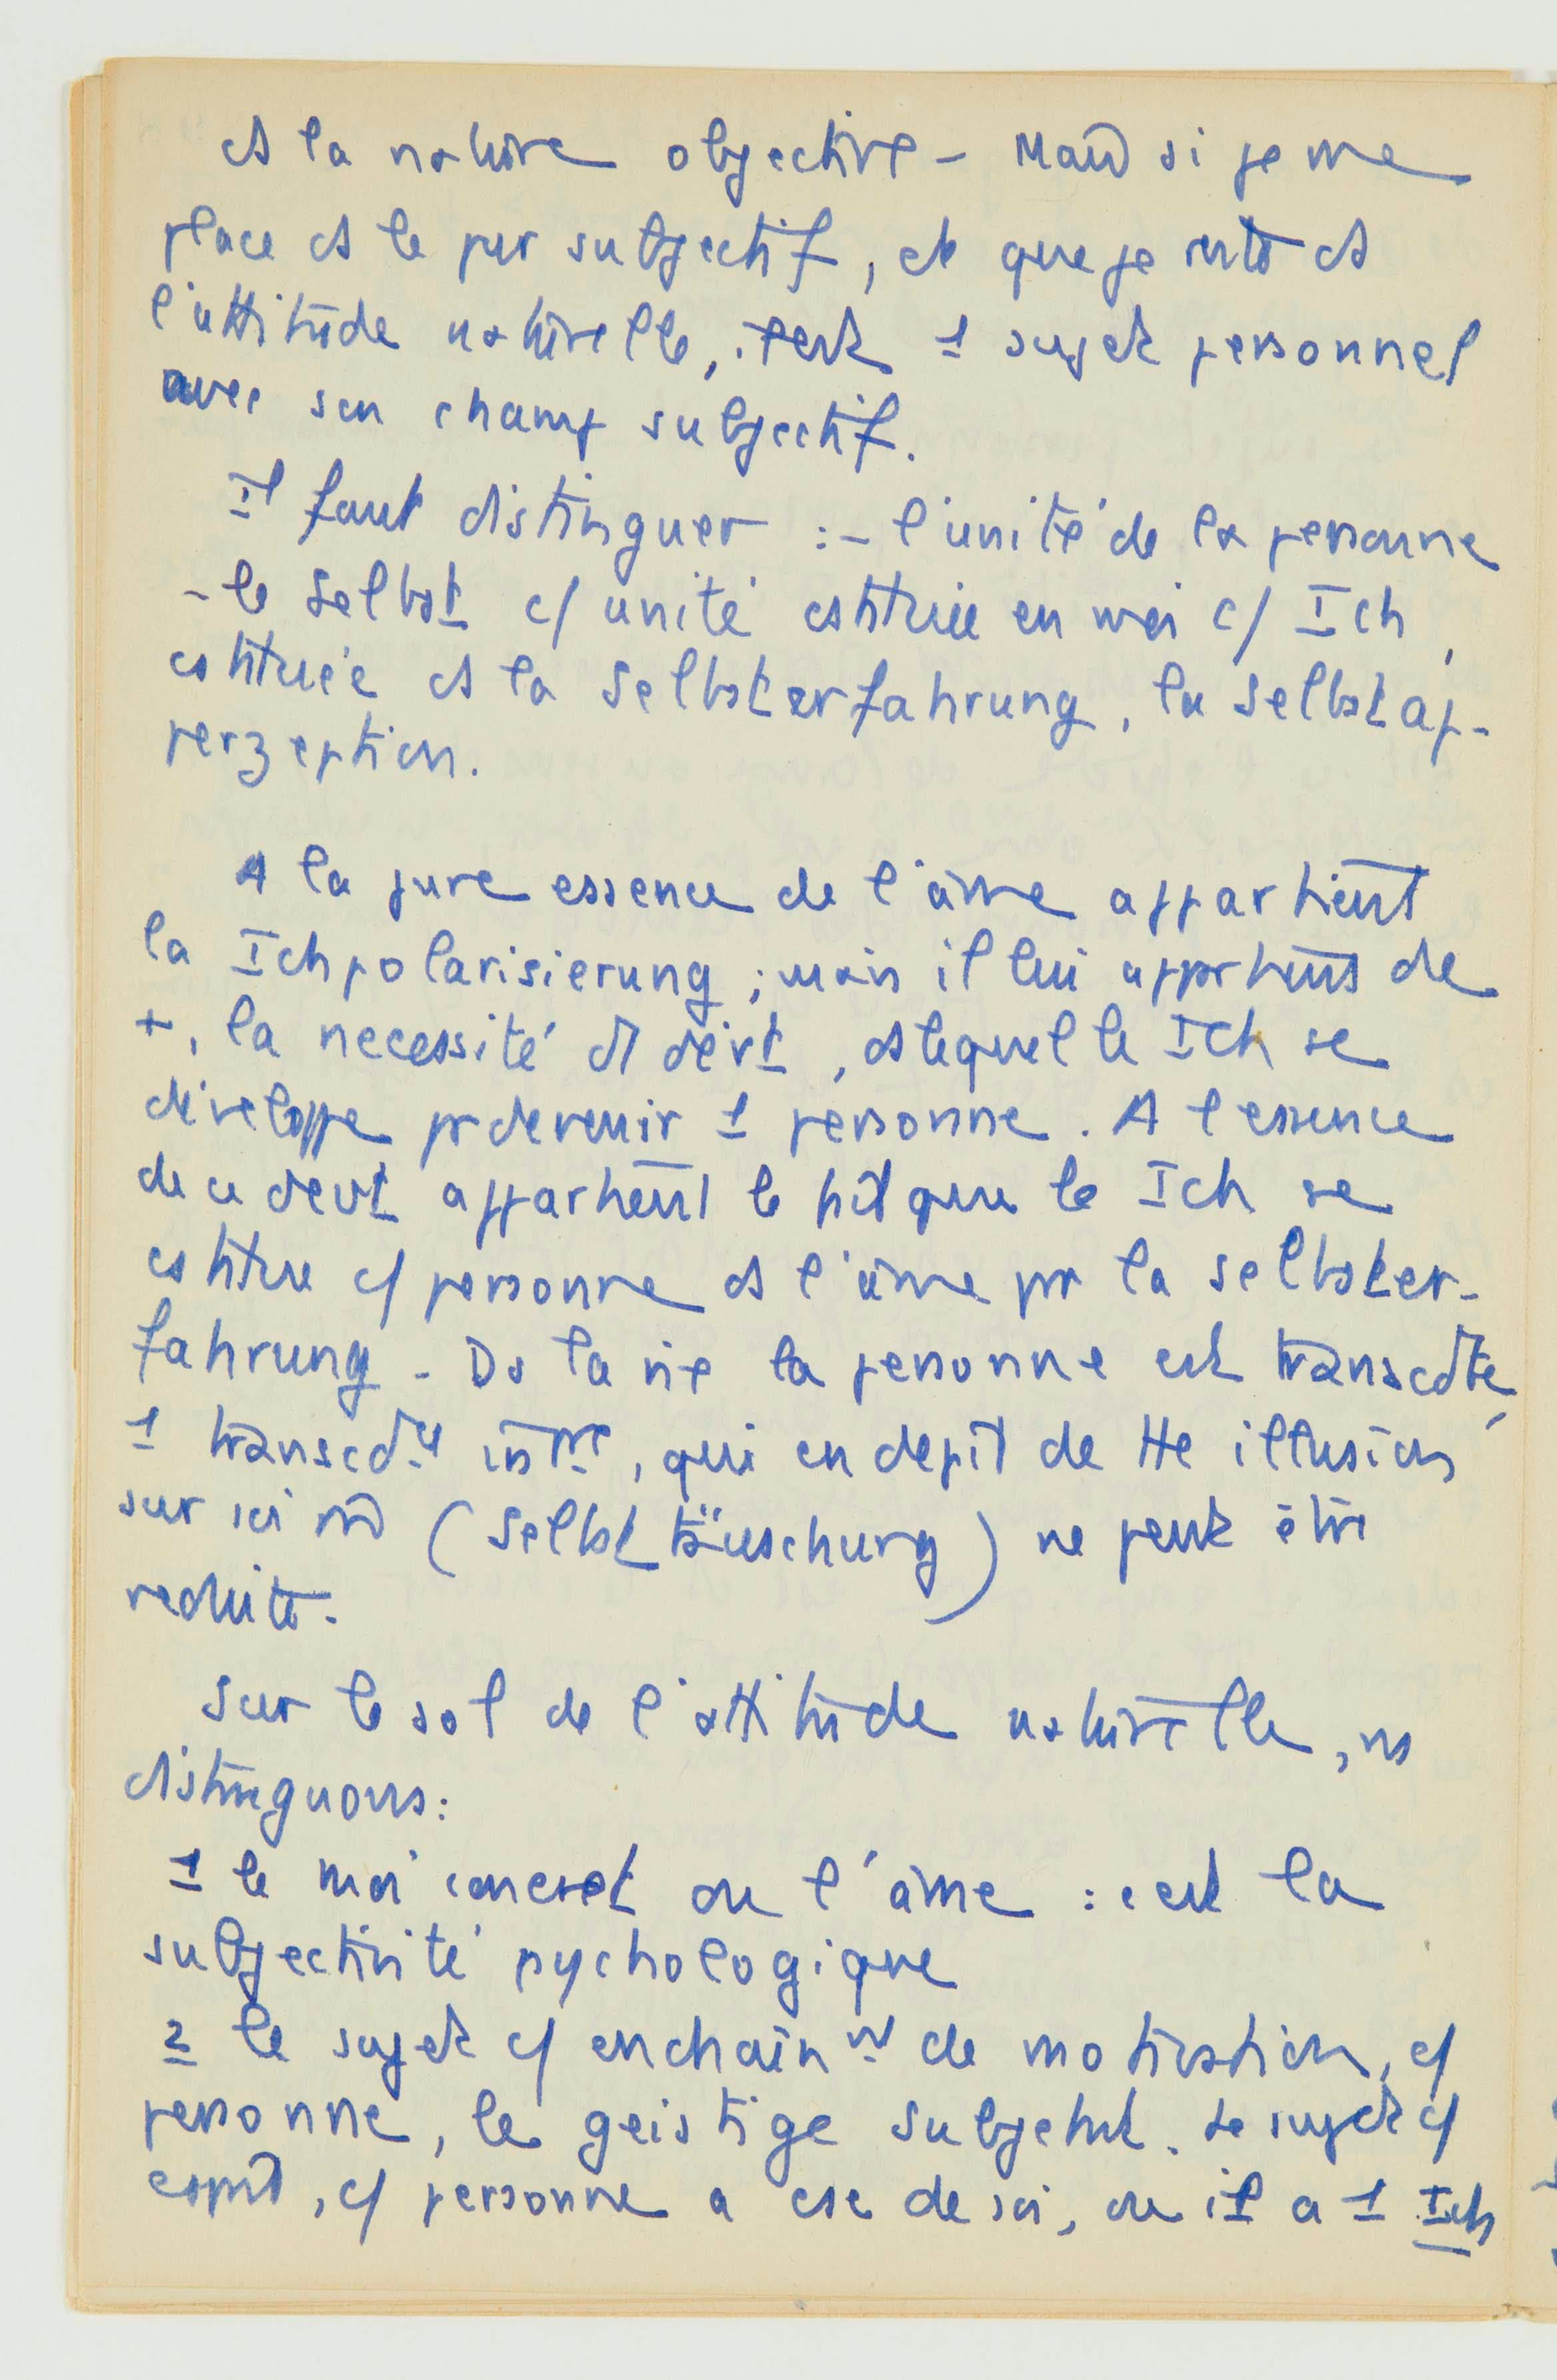 ds la nature objective – Mais si je me
place ds le pur subjectif, et que je reste ds
l'attitude naturelle, j'est 1 sujet personnel
avec son champ subjectif.
Il faut distinguer : – l'unité de la personne
– le Selbst c/ unité cstituée en moi c/ Ich,
cstituée ds la Selbsterfahrung, la Selbstap-
perzeption.
A la pure essence de l'âme appartient
la Ichpolarisierung ; mais il lui appartient de
+, la necessité d'1 devt, ds lequel le Ich se
développe pr devenir 1 personne. A l'essence
de ce devt appartient le fait que le Ich se
cstitue c/ personne ds l'âme par la Selbster-
fahrung – Ds la vie la personne est transcdte,
1 transcdce , qui en depit de tte illusion
sur soi m̂ (Selbsttäuschung) ne peut être
reduite.
Sur le sol de l'attitude naturelle, ns
distinguons :
1 le moi concret ou l'âme : c'est la
subjectivité psychologique
2 le sujet c/ enchaînnt de motivation, c/
personne, le geistige Subjekt. Le sujet c/
esprit, c/ personne a csc de soi, ou il a 1 Ich